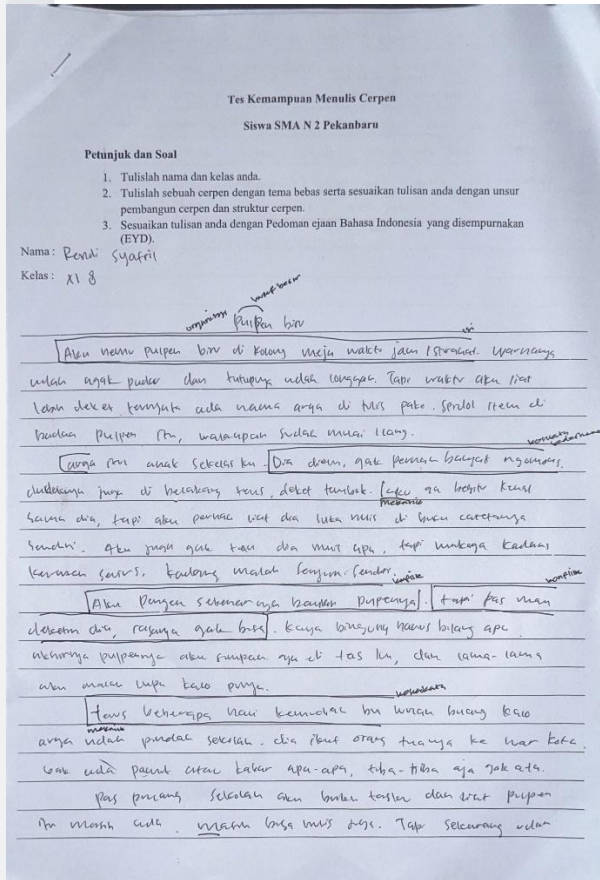 Tes Kemampuan Menulis Cerpen
Siswa SMA N 2 Pekanbaru
Petunjuk dan Soal
1. Tulislah nama dan kelas anda.
2. Tulislah sebuah cerpen dengan tema bebas serta sesuaikan tulisan anda dengan unsur
pembangun cerpen dan struktur cerpen.
3. Sesuaikan tulisan anda dengan Pedoman ejaan Bahasa Indonesia yang disempurnakan
(EYD).
Nama : Rendi Syafril
Kelas : XI 8
Pulpen biru
isi
Aku nemu pulpen biru di kolong meja waktu jam istirahat. Warnanya
udah agak pudar dan tutupnya udah longgar. Tapi waktu aku liat
lebih deket ternyata ada nama arga di tulis pake spidol item di
badan pulpen itu, walaupun sudah mulai ilang.
arga itu anak sekelas ku. Dia diem, gak pernah banyak ngomong,
duduknya juga di belakang terus, deket tembok. aku ga begitu kenal
mekanik
sama dia, tapi aku pernah liat dia suka nulis di buku catetanya
sendiri. Aku juga gak tau dia nulis apa, tapi mukaya kadang
serius, kadang malah senyum-sendiri.
konflik
Aku pengen sebenarnya balikin pulpenya. tapi pas mau
deketin dia, rasanya gak bisa. kaya bingung harus bilang apa.
akhirnya pulpennya aku simpan aja di tas ku, dan lama-lama
aku malah lupa kalo punya.
kosakata
terus beberapa hari kemudian bu wulan bilang kalo
mekanik
arga udah pindah sekolah. dia ikut orang tuanya ke luar kota.
Gak ada pamit atau kabar apa-apa, tiba-tiba aja gak ada.
Pas pulang sekolah aku buka tasku dan liat pulpen
itu masih ada. masih bisa nulis juga. Tapi sekarang udah